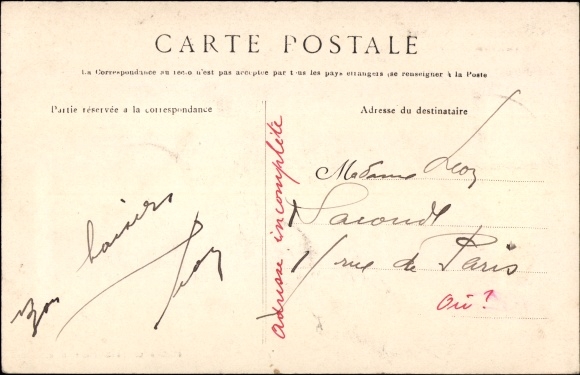 CARTE POSTALE
La Correspondance au recto n'est pas acceptée par tous les pays étrangers (se renseigner à la Poste
Partie réservée à la correspondance
Adresse du destinataire
Bons baisers
Léon
adresse incomplète
Madame Léon
rue de Paris
Où?